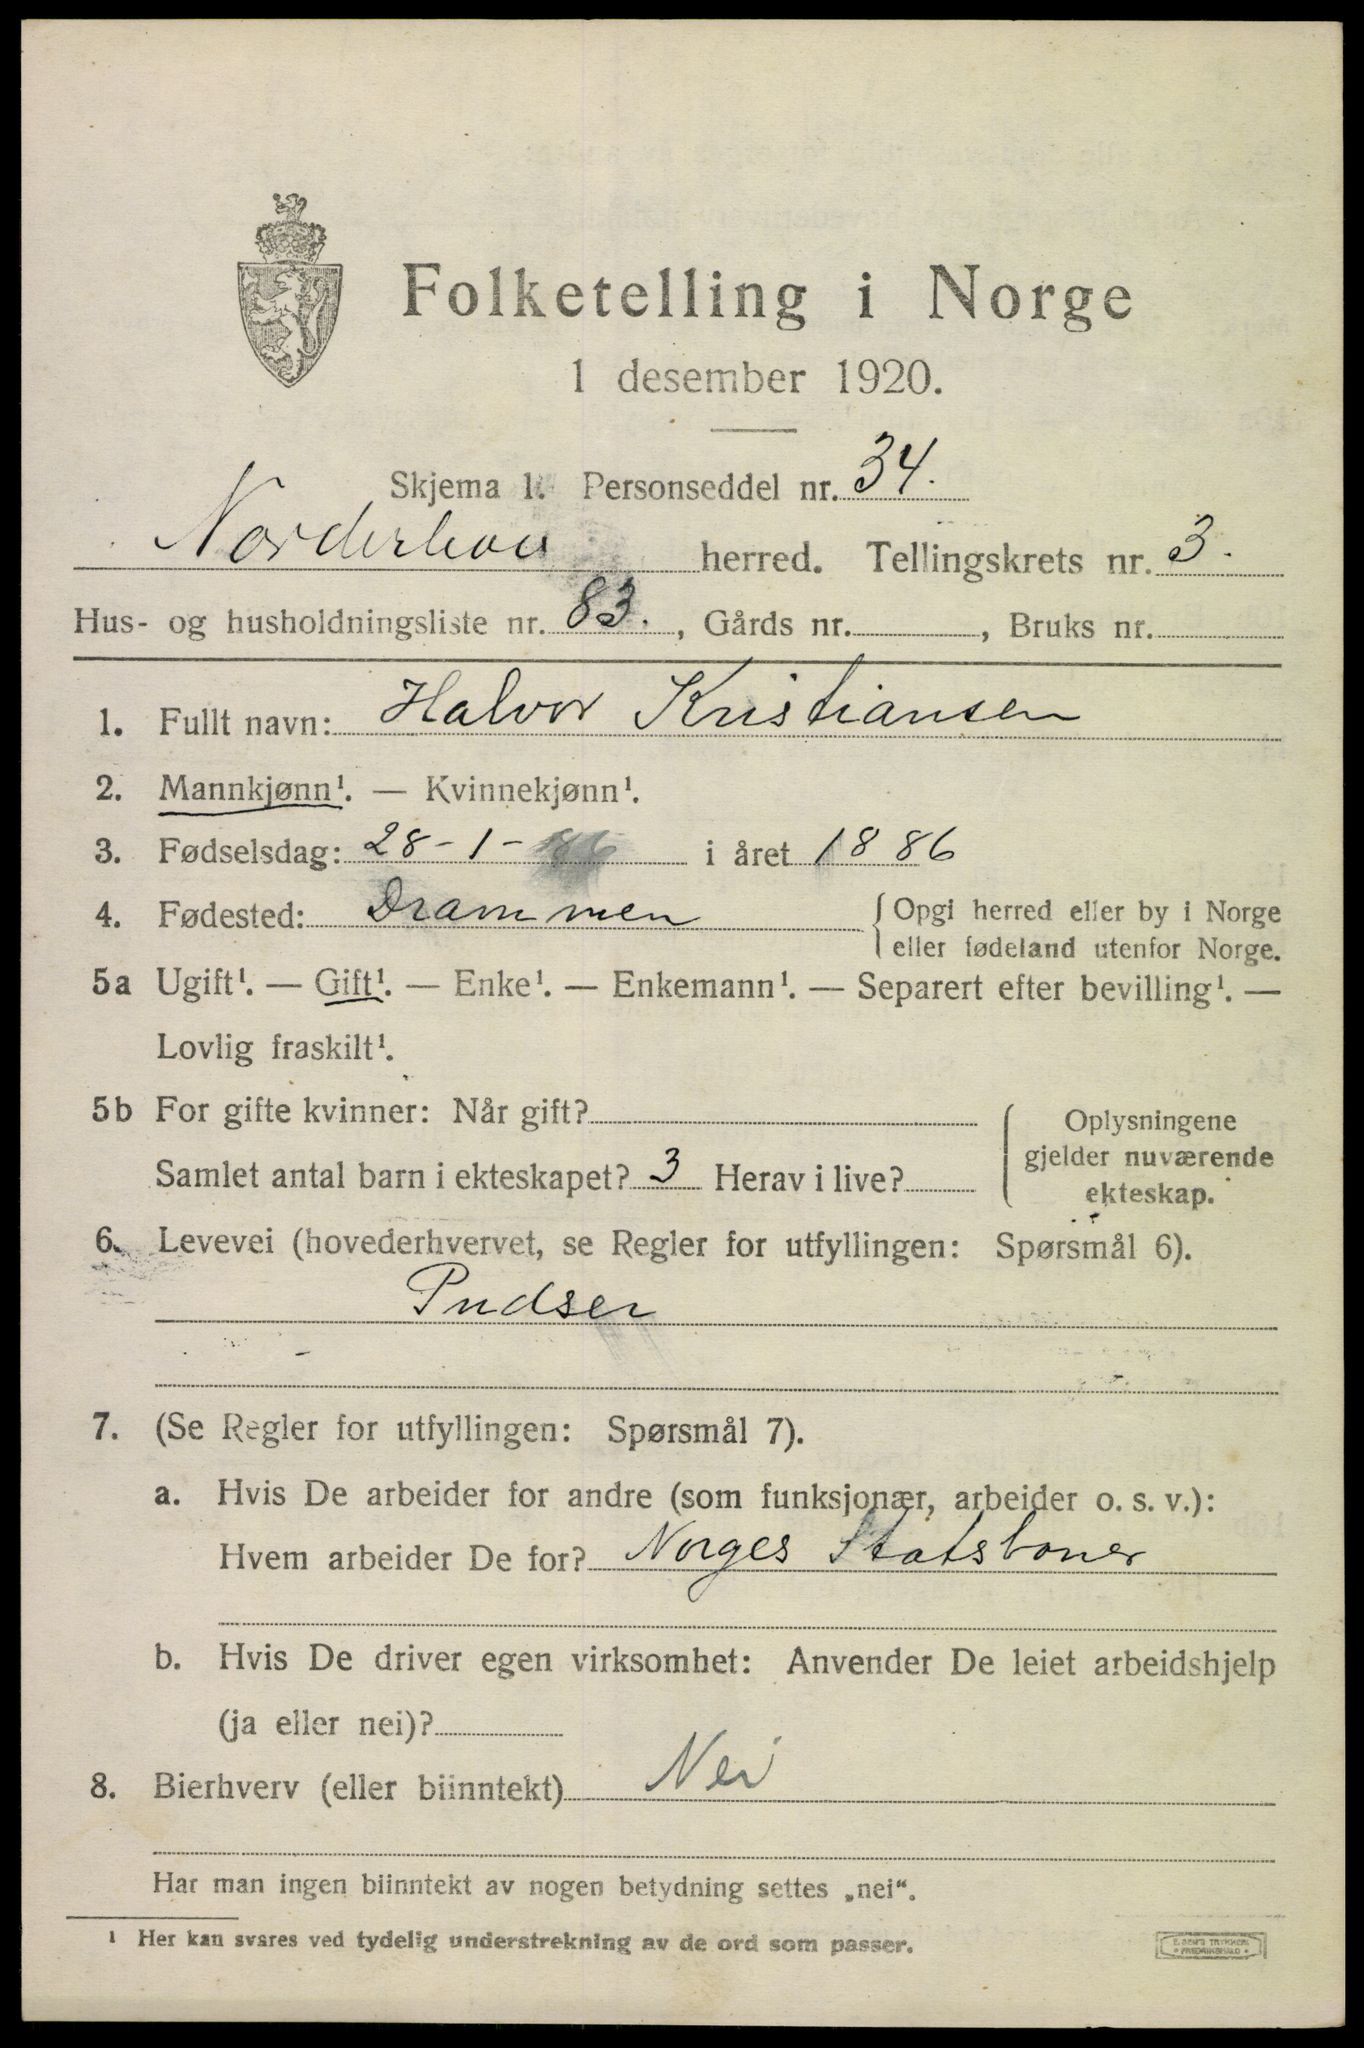 Folketelling i Norge
1 desember 1920.
Skjema 1. Personseddel nr. 34.
Norderhov herred. Tellingskrets nr. 3.
Hus- og husholdningsliste nr. 83., Gårds nr. , Bruks nr.
1. Fullt navn: Halvor Kristiansen
2. Mannkjønn¹. — Kvinnekjønn¹.
3. Fødselsdag: 28-1-86 i året 1886
4. Fødested: Drammen { Opgi herred eller by i Norge
eller fødeland utenfor Norge.
5a Ugift¹. — Gift¹. — Enke¹. — Enkemann¹. — Separert efter bevilling¹. —
Lovlig fraskilt¹.
5b For gifte kvinner: Når gift?
Samlet antal barn i ekteskapet? 3 Herav i live?
{ Oplysningene
gjelder nuværende
ekteskap.
6. Levevei (hovederhvervet, se Regler for utfyllingen: Spørsmål 6).
Pudser
7. (Se Regler for utfyllingen: Spørsmål 7).
a. Hvis De arbeider for andre (som funksjonær, arbeider o. s. v.):
Hvem arbeider De for? Norges Statsbaner
b. Hvis De driver egen virksomhet: Anvender De leiet arbeidshjelp
(ja eller nei)?
8. Bierhverv (eller biinntekt) Nei
Har man ingen biinntekt av nogen betydning settes „nei“.
¹ Her kan svares ved tydelig understrekning av de ord som passer.
E. SEM'S TRYKKERI
FREDRIKSHALD